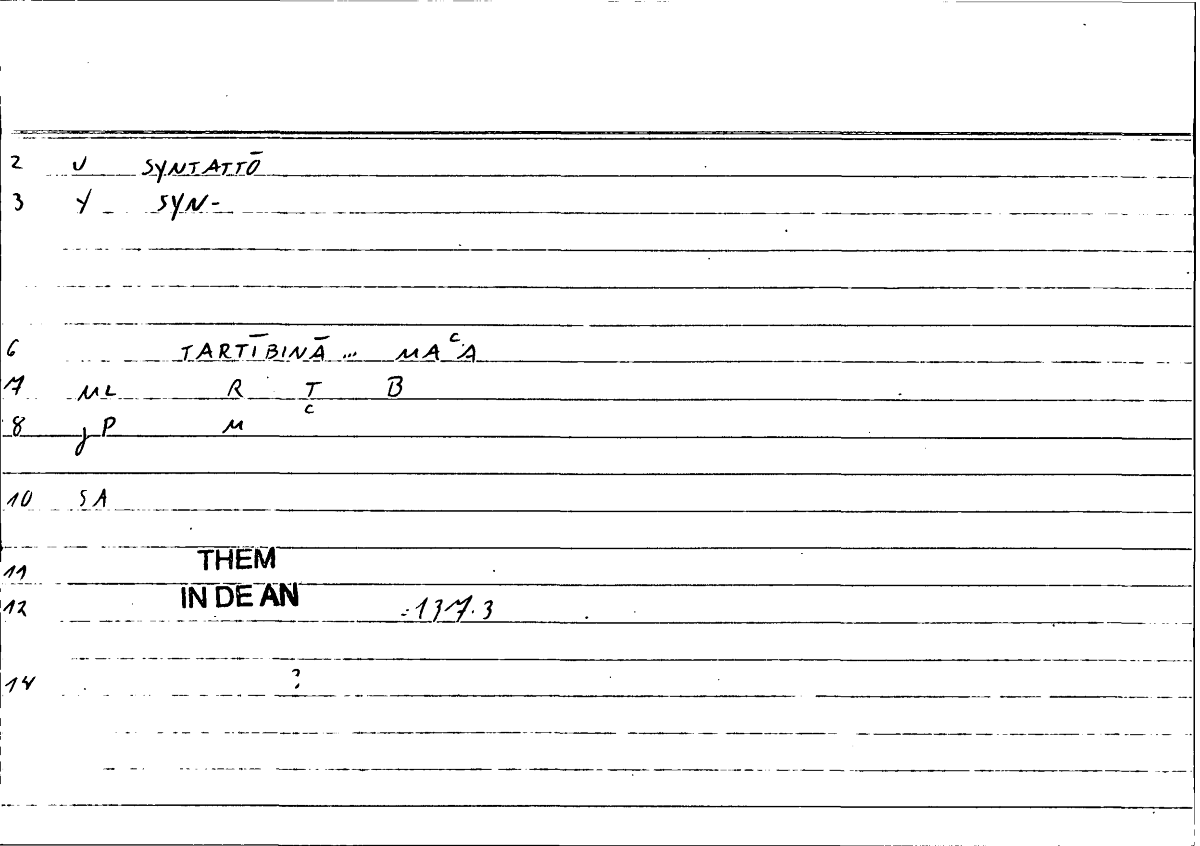 2 U SYNTATTŌ
3 Y SYN-
6 TARTĪBINĀ ... MAᶜA
7 ML R T B
C
8 jP M
10 SA
THEM
11
IN DE AN
12 =137.3
14 ?